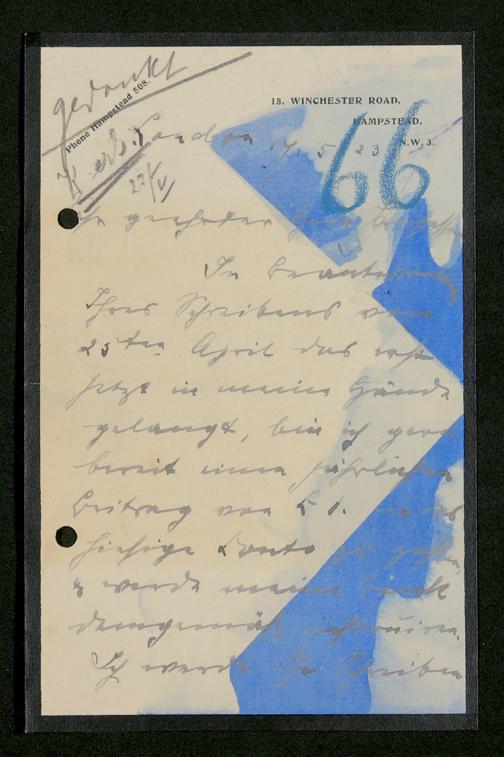 gedankt
Phone Hampstead 508.
15. WINCHESTER ROAD,
HAMPSTEAD,
N.W. 3.
66
erh. London 17. 5. 23
22/V
geehrter
In Beantwortung
Ihres Schreibens vom
25ten April das erst
jetzt in meine Hände
gelangt, bin ich gern
bereit einen jährlichen
Beitrag von £ 1. — 
hiesige Conto zu
& werde meine Bank
demgemäß instruiren.
Ich werde Ihr Schreiben